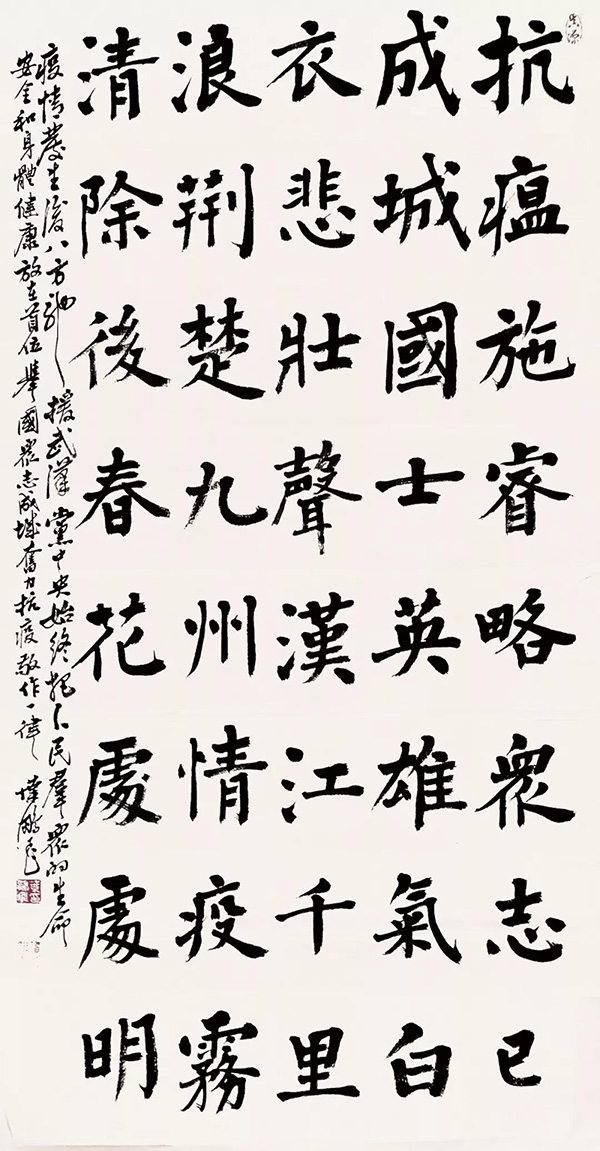 抗瘟施睿略衆志已
成城國士英雄氣白
衣悲壯聲漢江千里
浪荆楚九州情疫霧
清除後春花處處明
疫情發生後八方馳援武漢黨中央始終把人民羣衆的生命
安全和身體健康放在首位舉國眾志成城奮力抗疫敬作一律